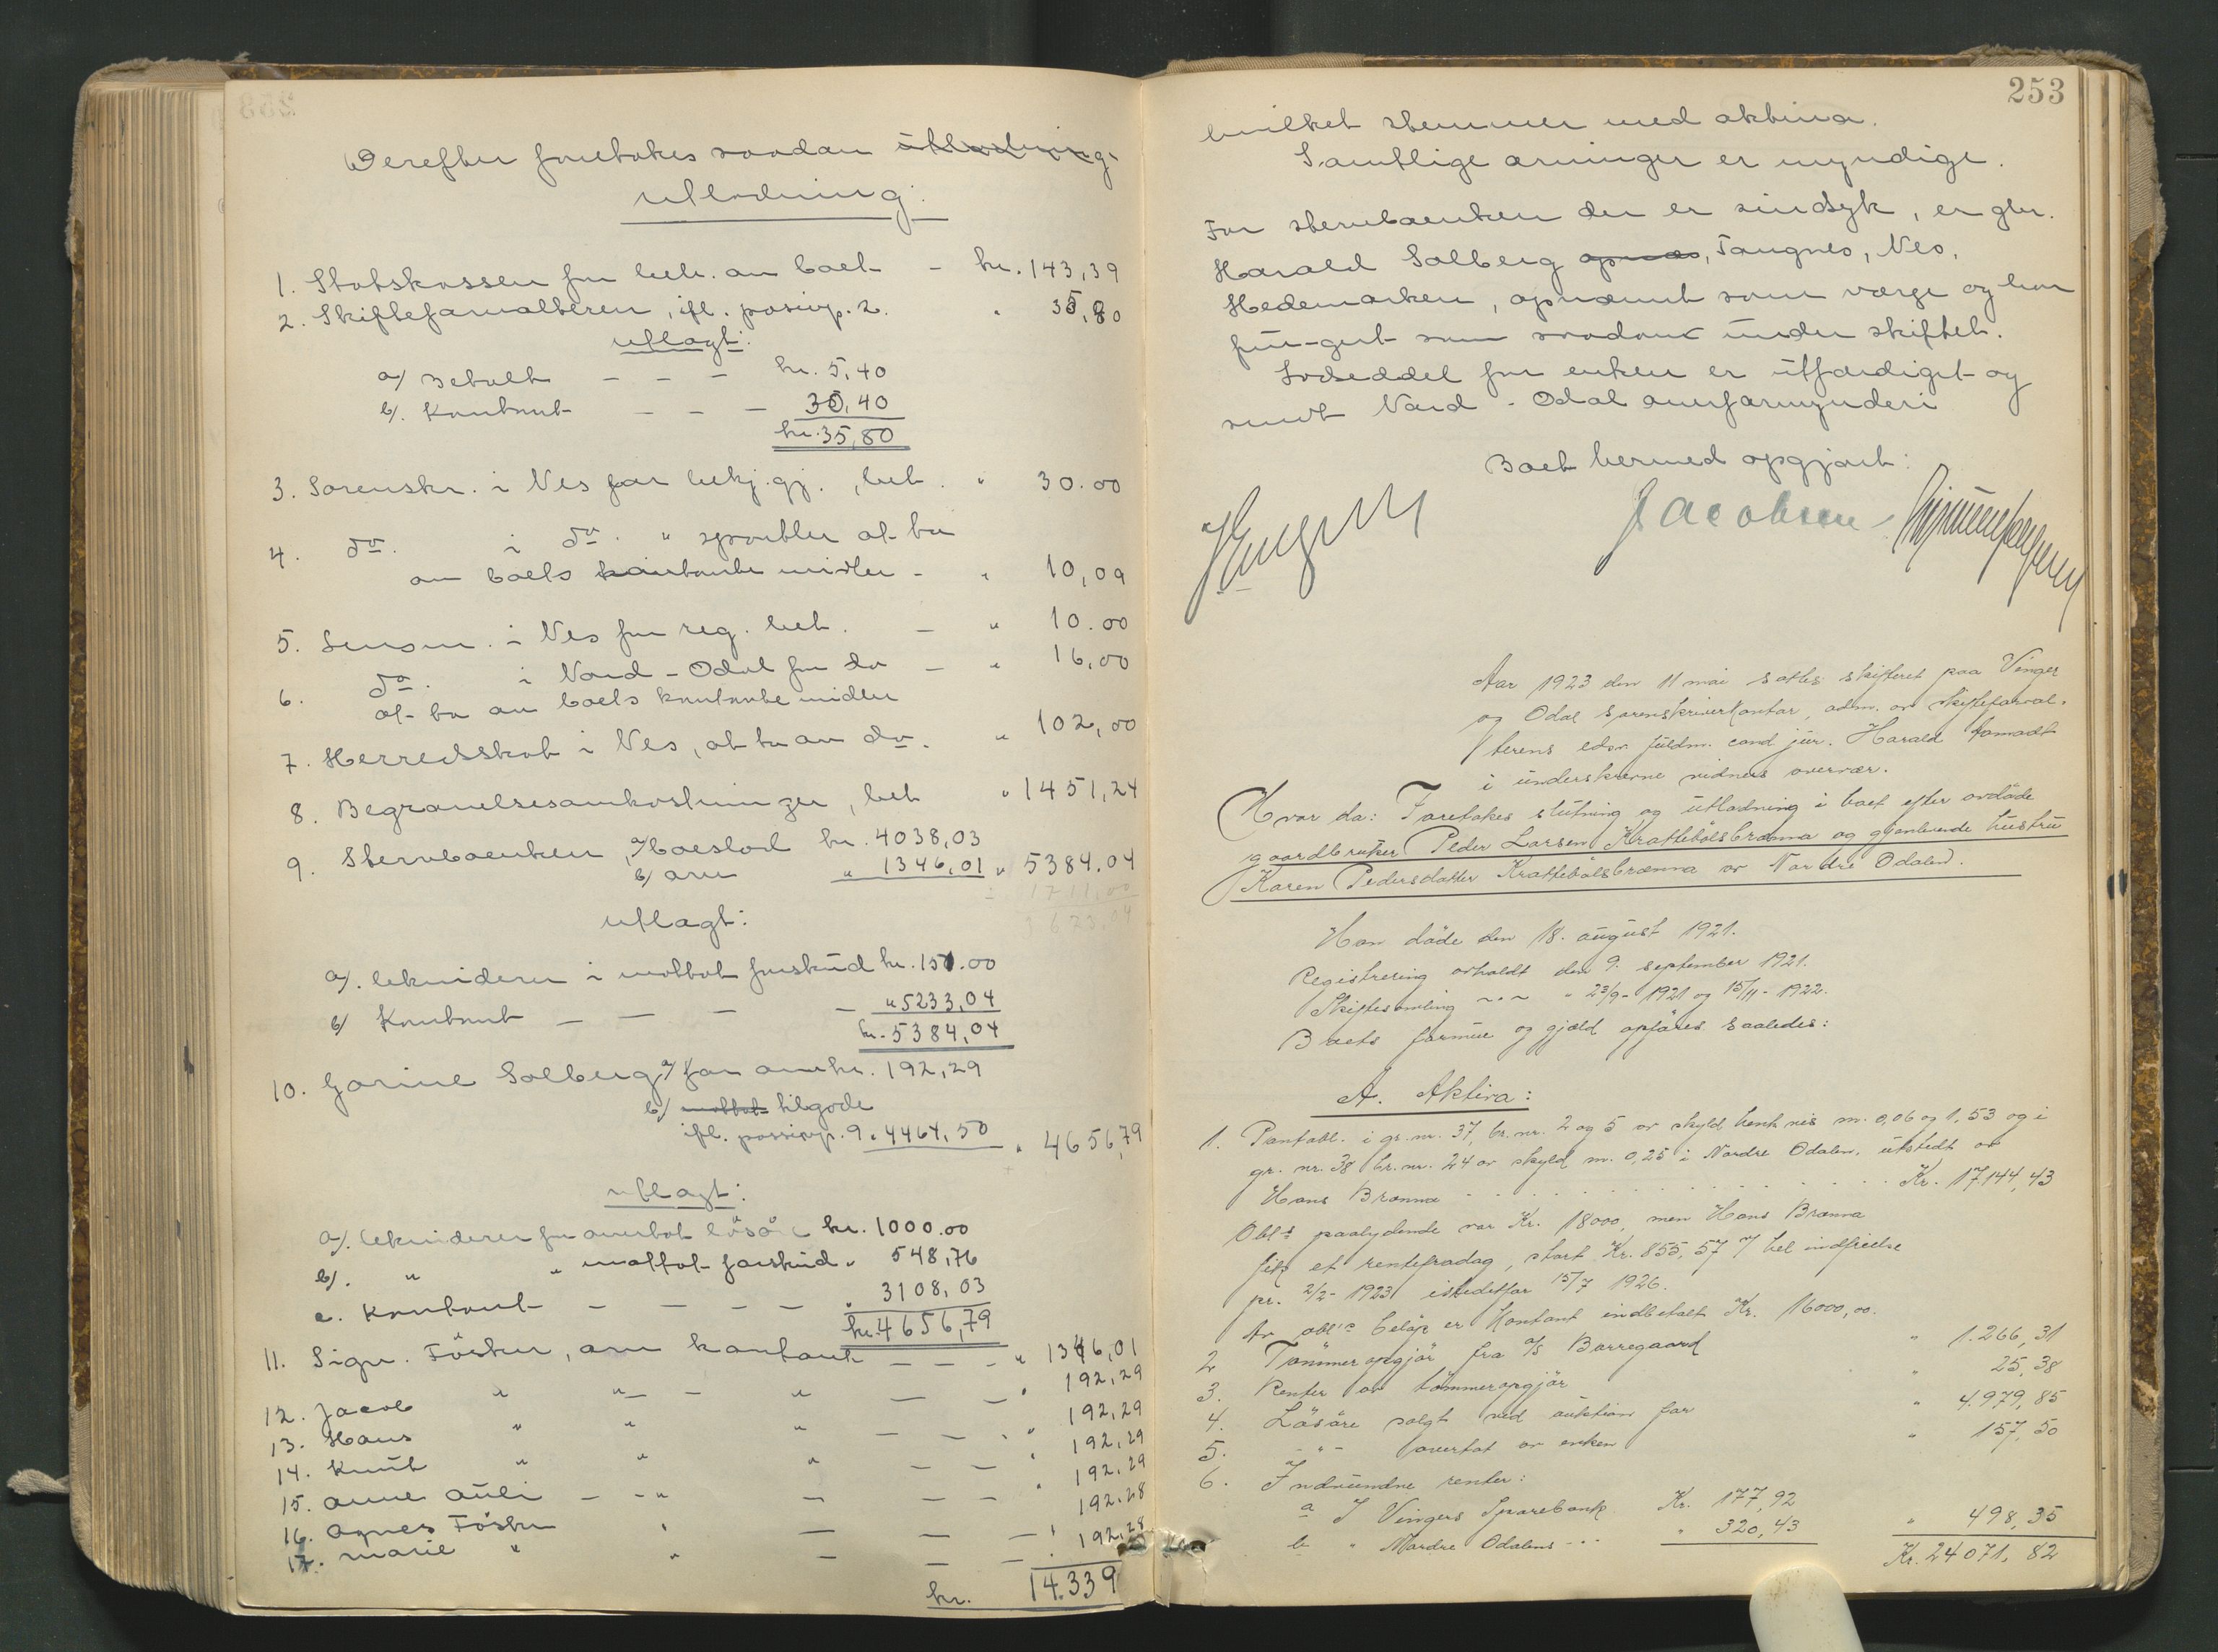 Derefter foretokes saadan utlodning
utlodning:
1. Statskassen for beh. av boet - kr. 143,39
2. Skifteforvalteren, ifl. passivp. 2. " 35,80
utlagt:
a/ Betalt - - - kr. 5,40
b/. Kontant - - - 30,40
kr. 35,80
3. Sorenskr. i Nes for bekj.gj., bet. " 30.00
4. do. i do. " sportler at ta
av boets kontante midler - " 10,09
5. Lensm. i Nes for reg. bet. - " 10.00
6. do. i Nord-Odal for do - " 16,00
at ta av boets kontante midler
7. Herredskat i Nes, at ta av do. " 102,00
8. Begravelsesomkostninger, bet " 1451,24
9. Stervboenken, a/ boeslod kr. 4038,03
b/ arv " 1346,01 " 5384.04
1711,00
3623,04
utlagt:
a/. lekviderer i mottat forskud kr. 151.00
b/ Kontant - - - - " 5233,04
kr. 5384,04
10. Gorine Solberg a/ far arv kr. 192,29
b/ mottat tilgode
ifl. passivp. 9 " 4464,50 " 4656,79
utlagt:
a/. lekviderer for overtat løsøre kr. 1000.00
b/. " " mottat forskud " 548,76
c. Kontant - - - - " 3108,03
kr. 4656,79
11. Sign. Fösker, arv kontant - - - " 1346,01
12. Jacob " " - " - - " 192,29
13. Hans " " " - - " 192,29
14. Knut " " " - - " 192,29
15. Anne Auli - - " - - - " 192,29
16. Agnes Fösker " - - - " 192,28
17. Marie " " - - - " 192,28
kr. 14.339
253
hvilket stemmer med aktiva.
Samtlige arvinger er myndige.
For stervboenken der er sindsyk, er gbr.
Harald Solberg opnævn, Tangnes, Nes,
Hedemarken, opnævnt som værge og har
fun-gert som saadan under skiftet.
Lodseddel for enken er utfærdiget og
sendt Nord-Odal overformynderi
Boet hermed opgjort:
Jacobsen
Aar 1923 den 11 mai sattes skifteret paa Vinger
og Odal sorenskriverkontor, adm. av skifteforval-
terens edsv. fuldm. cand jur. Harald Ramødt
i underskrevne vidners overvær.
Hvor da: Foretokes slutning og utlodning i boet efter avdøde
gaardbruker Peder Larsen Krattebölsbrænna og gjenlevende hustru
Karen Pedersdatter Krattebölsbrænna av Nordre Odalen.
Han døde den 18. august 1921.
Registrering avholdt den 9. september 1921.
Skiftesamling ~ " ~ " 23/9- 1921 og 15/11- 1922.
Boets formue og gjæld opføres saaledes:
A. Aktiva:
1. Pantobl. i gr. nr. 37, br. nr. 2 og 5 av skyld henh.vis m. 0,06 og 1,53 og i
gr. nr. 38 br. nr. 24 av skyld m. 0,25 i Nordre Odalen, utstedt av
Hans Brænna . . . . . . . . . Kr. 17.144,43
Obl.s paalydende var Kr. 18000, men Hans Brænna
fik et rentefradag, stort Kr. 855,57 v/ hel indfrielse
pr. 2/2- 1923 istedetfor 15/7 1926.
Av obl.s beløp er kontant indbetalt Kr. 16000,00.
2. Tømmeropgjør fra A/S Borregaard " 1.266,31
3. Renter av tømmeropgjør " 25,38
4. Løsøre solgt ved auktion for " 4.979,85
5. - " - overtat av enken " 157,50
6. Indvundne renter:
a I Vingers Sparebank Kr. 177,92
b " Nordre Odalens - - - " 320,43 " 498,35
Kr. 24071,82